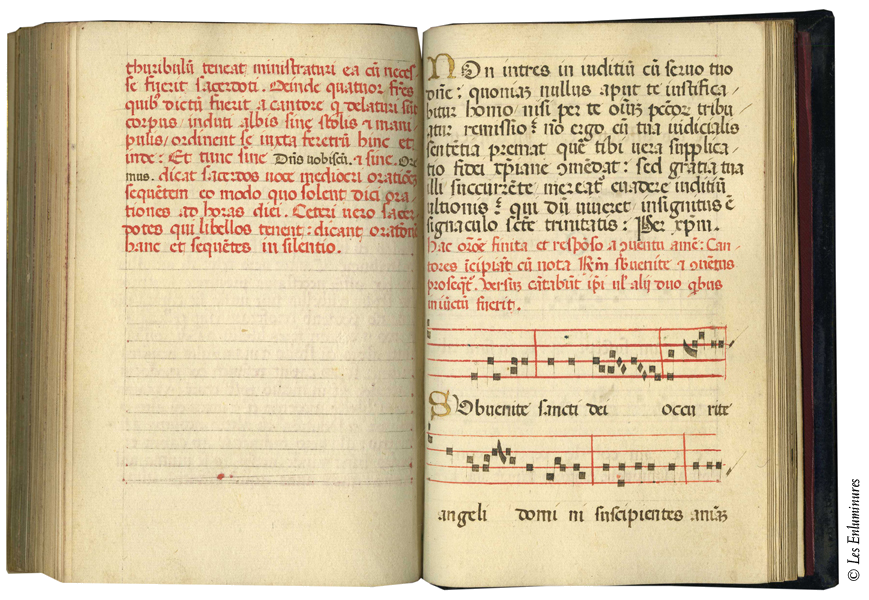 thuribulū teneat ministraturi ea cū neces-
se fuerit sacerdoti. Deinde quatuor fr̄es
quib᷒ dictū fuerit a cantore q̄ delaturi sūt
corpus induti albis sine stolis ⁊ mani-
pulis / ordinent se iuxta feretrū hinc et
inde: Et tunc sine Dn̄s uobiscū. ⁊ sine. Ore
mus. dicat sacerdos uoce mediocri orationē
sequētem eo modo quo solent dici ora-
tiones ad horas diei. Ceteri uero sacer-
potes qui libellos tenent: dicant orationē
hanc et sequētes in silentio.
NOn intres in iuditiū cū seruo tuo
dn̄e: quoniaꝫ nullus aput te iustifica-
bitur homo / nisi per te oīuꝫ pc̄cor̄ tribu
atur remissio: nō ergo eū tua iudicialis
sentētia premat quē tibi uera supplica-
tio fidei xp̄iane ꝯmēdat: sed gratia tua
illi succurrēte mereat᷒ euadere iuditiū
ultionis: qui dū uiueret insignitus ē
signaculo scē̄ trinitatis: Per xp̄m.
Hac or̄one finita et respōso a ꝯuentu amē: Can-
tores īcipiāt cū nota R̄m sb̄uenite ⁊ ꝯuētus
proseqt̄. Versuꝫ cātabūt ip̄i ul᷒ alij duo qb̄us
iniūctū fuerit.
SUbuenite sancti dei occu rite
angeli domi ni suscipientes aniaꝫ
© Les Enluminures